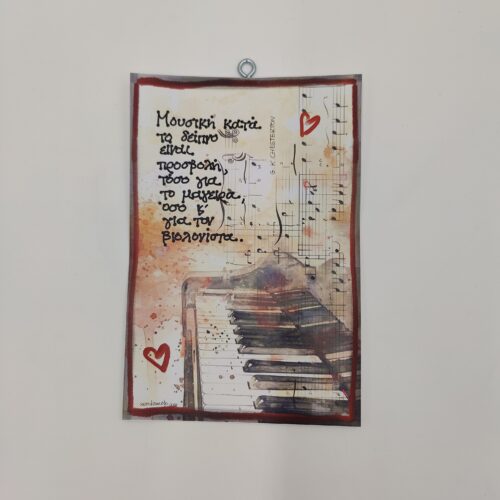 Μουσική κατά
το δείπνο
είναι
προσβολή,
τόσο για
το μάγειρα,
όσο κ'
για τον
βιολονίστα..
G. K. CHESTERTON